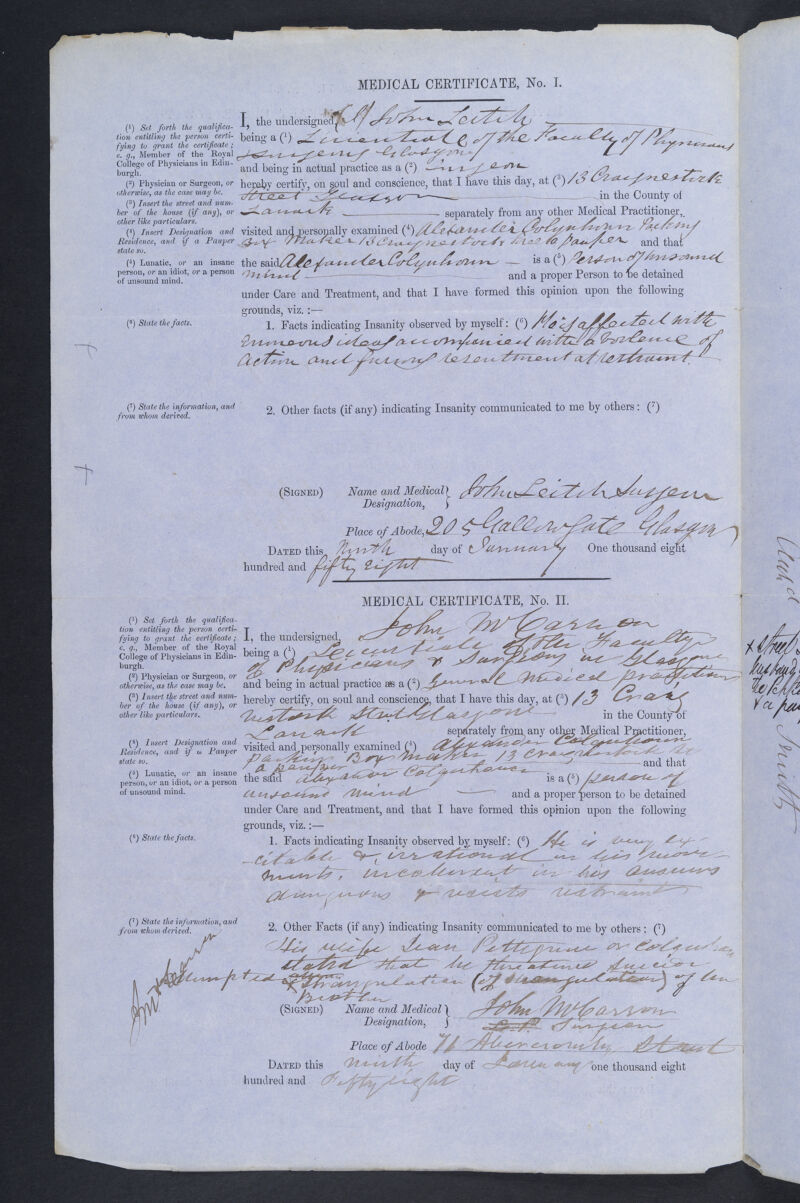 MEDICAL CERTIFICATE, No. I.
(¹) Set forth the qualifica-
tion entitling the person certi-
fying to grant the certificate;
e. g., Member of the Royal
College of Physicians in Edin-
burgh.
(²) Physician or Surgeon, or
otherwise, as the case may be.
(³) Insert the street and num-
ber of the house (if any), or
other like particulars.
(⁴) Insert Designation and
Residence, and if a Pauper
state so.
(⁵) Lunatic, or an insane
person, or an idiot, or a person
of unsound mind.
(⁶) State the facts.
(⁷) State the information, and
from whom derived.
I, the undersigned, John Leitch
being a (¹) Licentiate of the Faculty of Physicians
Surgeons Glasgow
and being in actual practice as a (²) Surgeon
hereby certify, on soul and conscience, that I have this day, at (³) 13 Craignestock
Street Glasgow in the County of
Lanark separately from any other Medical Practitioner,
visited and personally examined (⁴) Alexander Colquhoun Packing
Box Maker 13 Craignestock Street a pauper and that
the said Alexander Colquhoun is a (⁵) Person of unsound
mind and a proper Person to be detained
under Care and Treatment, and that I have formed this opinion upon the following
grounds, viz. :—
1. Facts indicating Insanity observed by myself: (⁶) He is affected with
erroneous ideas accompanied with a violence of
action and furious resentment at restraint.
2. Other facts (if any) indicating Insanity communicated to me by others: (⁷)
(SIGNED) Name and Medical Designation, John Leitch Surgeon
Place of Abode, 205 Gallowgate Glasgow
DATED this Ninth day of January One thousand eight
hundred and fifty eight
MEDICAL CERTIFICATE, No. II.
(¹) Set forth the qualifica-
tion entitling the person certi-
fying to grant the certificate;
e. g., Member of the Royal
College of Physicians in Edin-
burgh.
(²) Physician or Surgeon, or
otherwise, as the case may be.
(³) Insert the street and num-
ber of the house (if any), or
other like particulars.
(⁴) Insert Designation and
Residence, and if a Pauper
state so.
(⁵) Lunatic, or an insane
person, or an idiot, or a person
of unsound mind.
(⁶) State the facts.
(⁷) State the information, and
from whom derived.
I, the undersigned, John McCarron
being a (¹) Licentiate of the Faculty
of Physicians & Surgeons in Glasgow
and being in actual practice as a (²) General Medical practitioner
hereby certify, on soul and conscience, that I have this day, at (³) 13 Craig
nestock Street Glasgow in the County of
Lanark separately from any other Medical Practitioner,
visited and personally examined (⁴) Alexander Colquhoun
packing Box Maker 13 Craignestock St
a pauper and that
the said Alexander Colquhoun is a (⁵) person of
unsound mind and a proper person to be detained
under Care and Treatment, and that I have formed this opinion upon the following
grounds, viz. :—
1. Facts indicating Insanity observed by myself: (⁶) He is very ex-
-citable & irrational in his move-
ments, incoherent in his answers
dangerous & resists restraint
2. Other Facts (if any) indicating Insanity communicated to me by others: (⁷)
His wife Jean Pettigrew or Colquhoun
stated that he threatened suicide
& attempted strangulation (of strangulation) of her
Brother
(SIGNED) Name and Medical Designation, John McCarron
Surgeon
Place of Abode 71 Abercromby Street
DATED this ninth day of January one thousand eight
hundred and Fifty eight